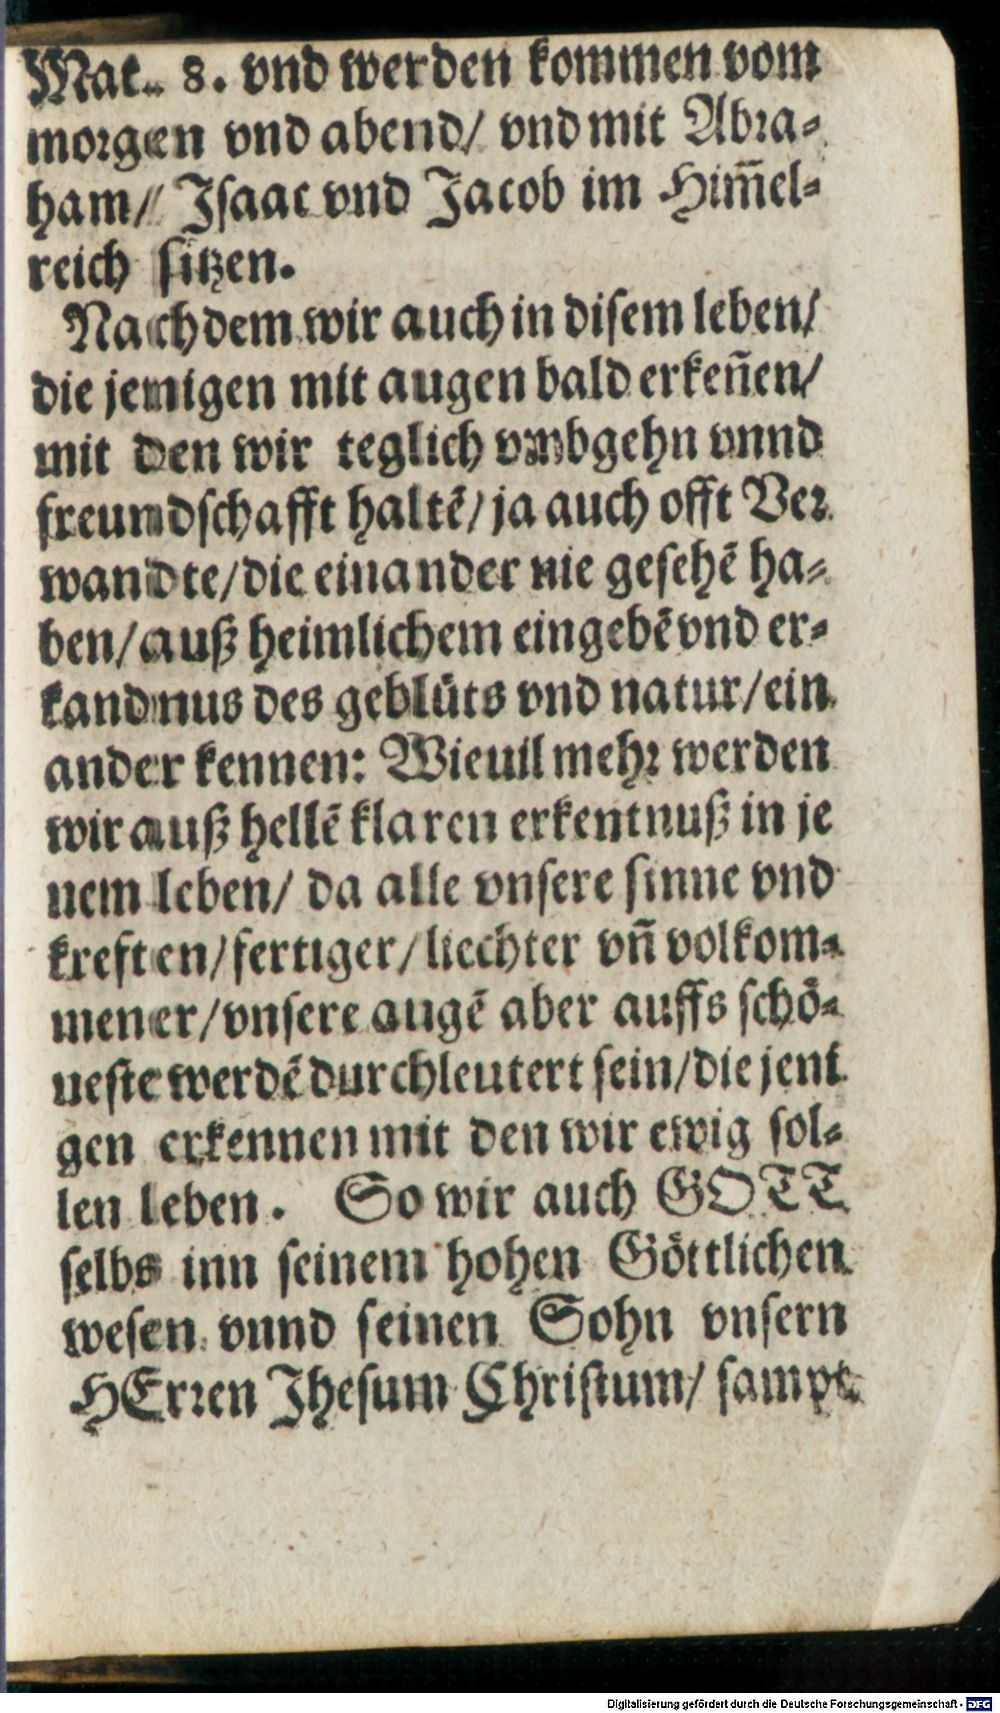 Mat. 8. vnd werden kommen vom
morgen vnd abend/ vnd mit Abra-
ham/ Isaac vnd Jacob im Him̄el-
reich sitzen.
Nach dem wir auch in disem leben/
die jenigen mit augen bald erken̄en/
mit den wir teglich vmbgehn vnnd
freundschafft haltē/ ja auch offt Ver
wandte/ die einander nie gesehē ha-
ben/ auß heimlichem eingebē vnd er-
kandnus des geblüts vnd natur/ ein
ander kennen: Wieuil mehr werden
wir auß hellē klaren erkentnuß in je
nem leben/ da alle vnsere sinne vnd
kreften/ fertiger/ liechter vn̄ volkom-
mener/ vnsere augē aber auffs schö-
neste werdē durchleutert sein/ die jeni
gen erkennen mit den wir ewig sol-
len leben. So wir auch GOTT
selbs inn seinem hohen Göttlichen
wesen vnnd seinen Sohn vnsern
HErren Jhesum Christum/ sampt
Digitalisierung gefördert durch die Deutsche Forschungsgemeinschaft - DFG